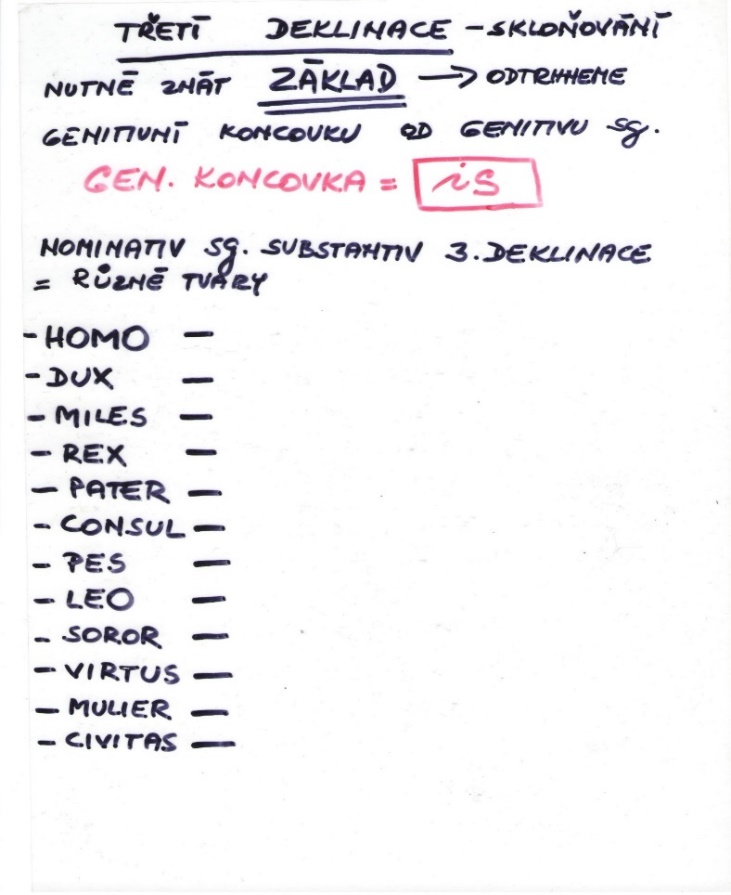 TŘETÍ DEKLINACE – SKLOŇOVÁNÍ
NUTNÉ ZNÁT ZÁKLAD → ODTRHNEME
GENITIVNÍ KONCOVKU OD GENITIVU sg.
GEN. KONCOVKA = is
NOMINATIV sg. SUBSTANTIV 3. DEKLINACE
= RŮZNÉ TVARY
- HOMO –
- DUX –
- MILES –
- REX –
- PATER –
- CONSUL –
- PES –
- LEO –
- SOROR –
- VIRTUS –
- MULIER –
- CIVITAS –